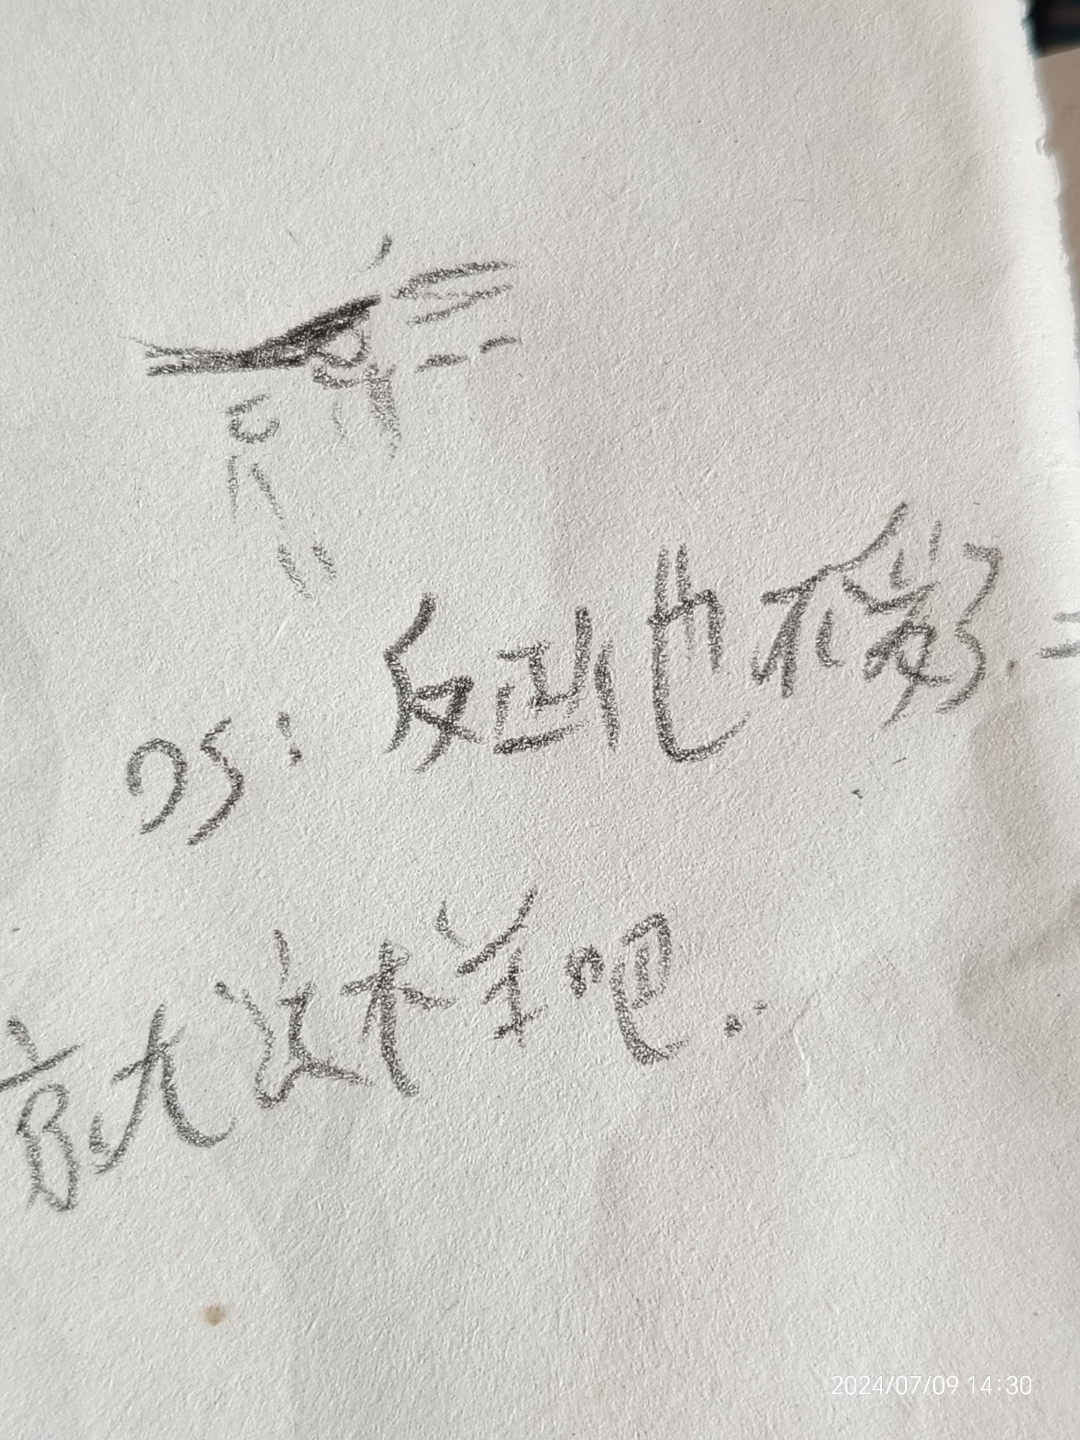 OS: 反 也不爱了.
就这样吧.
2024/07/09 14:30